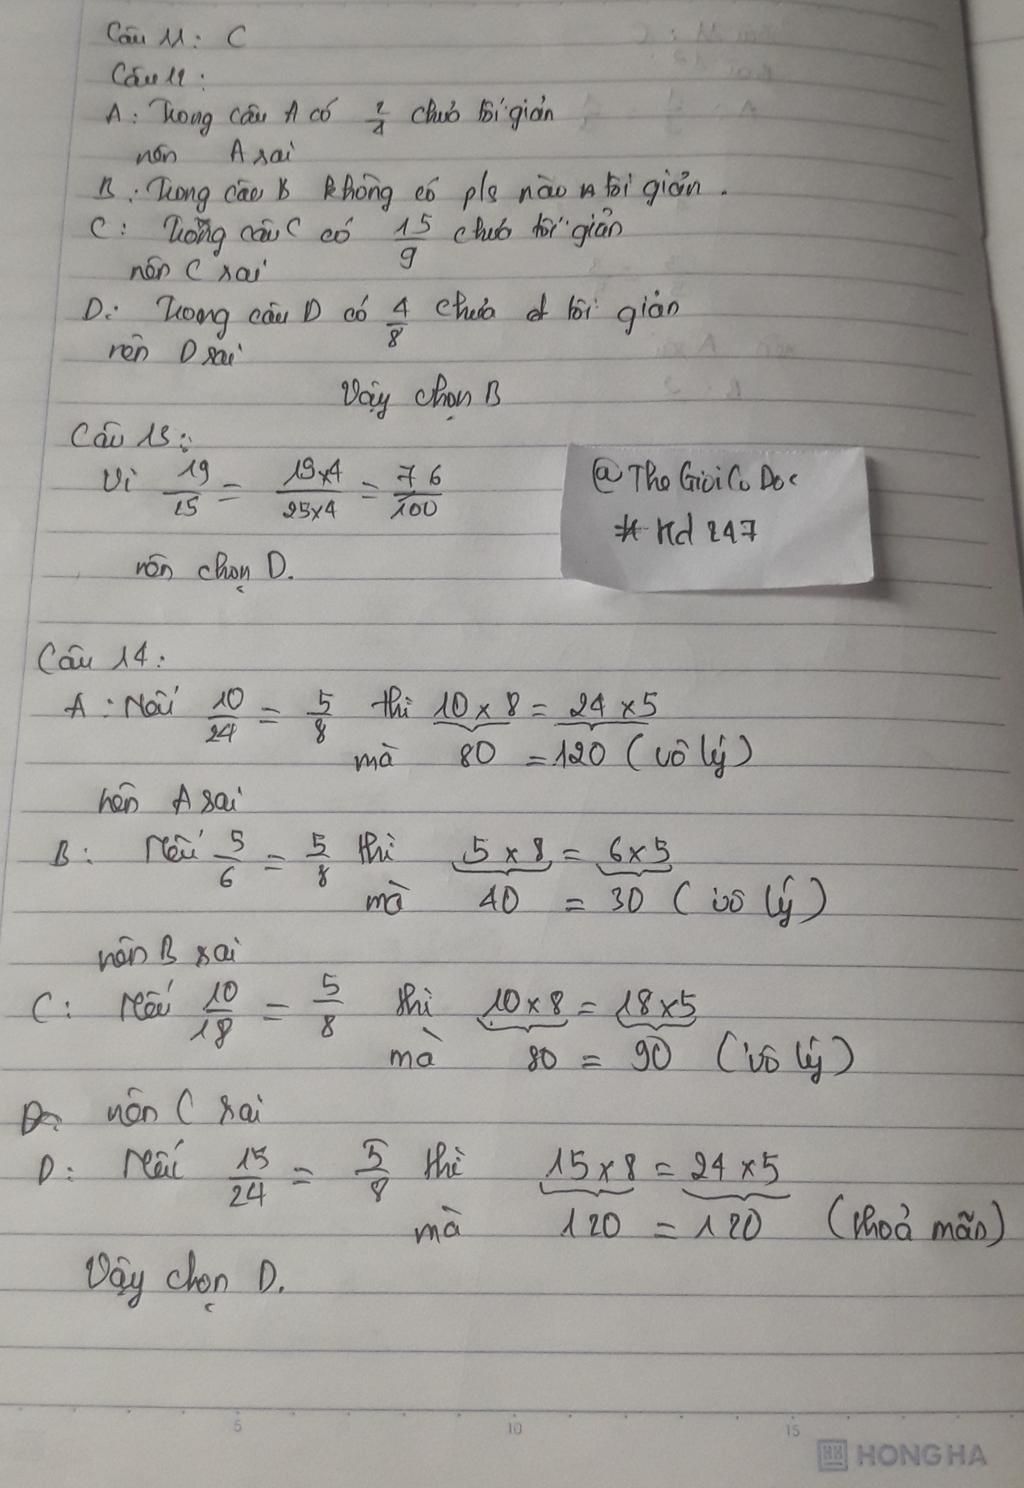 Câu 11: C
Câu 12:
A: Trong câu A có 2/4 chưa tối giản
nên A sai
B: Trong câu B không có pls nào tối giản.
C: Trong câu C có 15/9 chưa tối giản
nên C sai
D: Trong câu D có 4/8 chưa tối giản
nên D sai
Vậy chọn B
Câu 13:
Vì 19/25 = 19x4/25x4 = 76/100
nên chọn D.
@TheGioiCoDoc
# Hd 247
Câu 14:
A: Nếu 10/24 = 5/8 thì 10 x 8 = 24 x 5
mà 80 = 120 (vô lý)
nên A sai
B: Nếu 5/6 = 5/8 thì 5 x 8 = 6 x 5
mà 40 = 30 (vô lý)
nên B sai
C: Nếu 10/18 = 5/8 thì 10 x 8 = 18 x 5
mà 80 = 90 (vô lý)
nên C sai
D: Nếu 15/24 = 5/8 thì 15 x 8 = 24 x 5
mà 120 = 120 (thoả mãn)
Vậy chọn D.
5 10 15
HONG HA